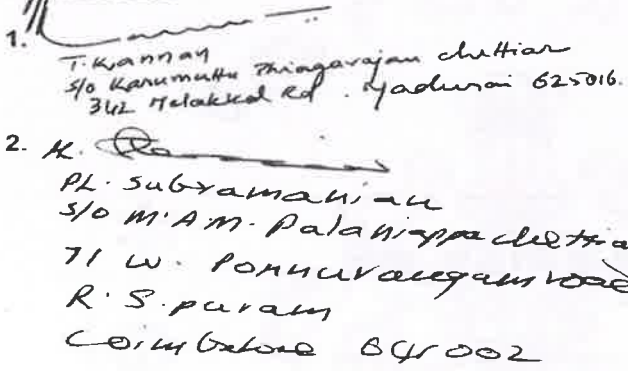 1.
T. Kannan
S/o Karumuttu Thiagarajan Chettiar
342 Melakkal Rd. Madurai 625016.
2.
PL. Subramanian
S/o M.A.M. Palaniappa chettia
71 W. Ponnurangam road
R.S. puram
Coimbatore 641002